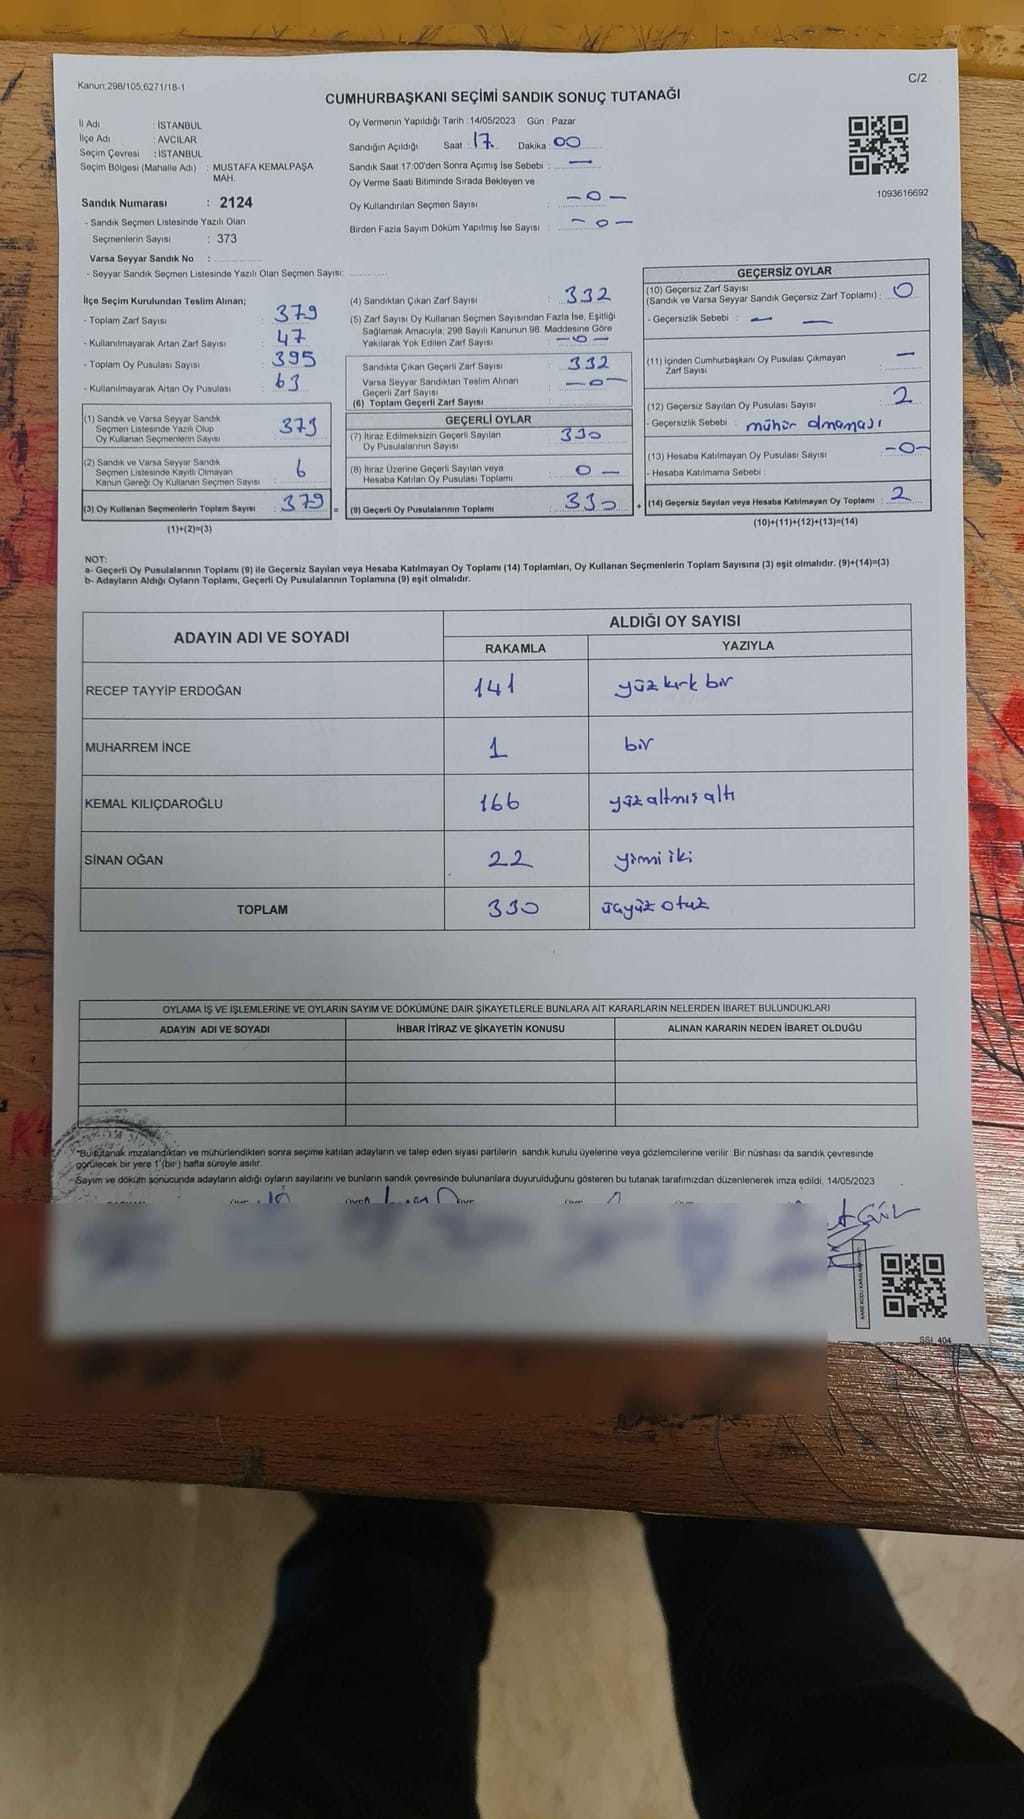 Kanun;298/105,6271/18-1
C/2
CUMHURBAŞKANI SEÇİMİ SANDIK SONUÇ TUTANAĞI
İl Adı : İSTANBUL
İlçe Adı : AVCILAR
Seçim Çevresi : İSTANBUL
Seçim Bölgesi (Mahalle Adı) : MUSTAFA KEMALPAŞA
MAH.
Sandık Numarası : 2124
- Sandık Seçmen Listesinde Yazılı Olan
Seçmenlerin Sayısı : 373
Varsa Seyyar Sandık No :
- Seyyar Sandık Seçmen Listesinde Yazılı Olan Seçmen Sayısı:
Oy Vermenin Yapıldığı Tarih :14/05/2023 Gün : Pazar
Sandığın Açıldığı Saat : 17 Dakika : 00
Sandık Saat 17.00'den Sonra Açımış İse Sebebi : —
Oy Verme Saati Bitiminde Sırada Bekleyen ve
Oy Kullandırılan Seçmen Sayısı : -0-
Birden Fazla Sayım Döküm Yapılmış İse Sayısı : -0-
1093616692
İlçe Seçim Kurulundan Teslim Alınan;
- Toplam Zarf Sayısı : 379
- Kullanılmayarak Artan Zarf Sayısı : 47
- Toplam Oy Pusulası Sayısı : 395
- Kullanılmayarak Artan Oy Pusulası : 63
(1) Sandık ve Varsa Seyyar Sandık
Seçmen Listesinde Yazılı Olup
Oy Kullanan Seçmenlerin Sayısı : 373
(2) Sandık ve Varsa Seyyar Sandık
Seçmen Listesinde Kayıtlı Olmayan
Kanun Gereği Oy Kullanan Seçmen Sayısı : 6
(3) Oy Kullanan Seçmenlerin Toplam Sayısı : 379 =
(1)+(2)=(3)
(4) Sandıktan Çıkan Zarf Sayısı : 332
(5) Zarf Sayısı Oy Kullanan Seçmen Sayısından Fazla İse, Eşitliği
Sağlamak Amacıyla; 298 Sayılı Kanunun 98. Maddesine Göre
Yakılarak Yok Edilen Zarf Sayısı : -0-
Sandıkta Çıkan Geçerli Zarf Sayısı : 332
Varsa Seyyar Sandıktan Teslim Alınan
Geçerli Zarf Sayısı : -0-
(6) Toplam Geçerli Zarf Sayısı
GEÇERLİ OYLAR
(7) İtiraz Edilmeksizin Geçerli Sayılan
Oy Pusulalarının Sayısı : 330
(8) İtiraz Üzerine Geçerli Sayılan veya
Hesaba Katılan Oy Pusulası Toplamı : 0 —
(9) Geçerli Oy Pusulalarının Toplamı : 330 +
GEÇERSİZ OYLAR
(10) Geçersiz Zarf Sayısı
(Sandık ve Varsa Seyyar Sandık Geçersiz Zarf Toplamı) : 0
- Geçersizlik Sebebi : — —
(11) İçinden Cumhurbaşkanı Oy Pusulası Çıkmayan
Zarf Sayısı : —
(12) Geçersiz Sayılan Oy Pusulası Sayısı : 2
- Geçersizlik Sebebi : mühür olmaması
(13) Hesaba Katılmayan Oy Pusulası Sayısı : -0-
- Hesaba Katılmama Sebebi :
(14) Geçersiz Sayılan veya Hesaba Katılmayan Oy Toplamı : 2
(10)+(11)+(12)+(13)=(14)
NOT:
a- Geçerli Oy Pusulalarının Toplamı (9) ile Geçersiz Sayılan veya Hesaba Katılmayan Oy Toplamı (14) Toplamları, Oy Kullanan Seçmenlerin Toplam Sayısına (3) eşit olmalıdır. (9)+(14)=(3)
b- Adayların Aldığı Oyların Toplamı, Geçerli Oy Pusulalarının Toplamına (9) eşit olmalıdır.
ADAYIN ADI VE SOYADI
ALDIĞI OY SAYISI
RAKAMLA YAZIYLA
RECEP TAYYİP ERDOĞAN 141 yüz kırk bir
MUHARREM İNCE 1 bir
KEMAL KILIÇDAROĞLU 166 yüz altmış altı
SİNAN OĞAN 22 yirmi iki
TOPLAM 330 üçyüz otuz
OYLAMA İŞ VE İŞLEMLERİNE VE OYLARIN SAYIM VE DÖKÜMÜNE DAİR ŞİKAYETLERLE BUNLARA AİT KARARLARIN NELERDEN İBARET BULUNDUKLARI
ADAYIN ADI VE SOYADI İHBAR İTİRAZ VE ŞİKAYETİN KONUSU ALINAN KARARIN NEDEN İBARET OLDUĞU
*Bu tutanak imzalandıktan ve mühürlendikten sonra seçime katılan adayların ve talep eden siyasi partilerin sandık kurulu üyelerine veya gözlemcilerine verilir. Bir nüshası da sandık çevresinde
görülecek bir yere 1 (bir) hafta süreyle asılır.
-Sayım ve döküm sonucunda adayların aldığı oyların sayılarını ve bunların sandık çevresinde bulunanlara duyurulduğunu gösteren bu tutanak tarafımızdan düzenlenerek imza edildi. 14/05/2023
GÜL
SSI_404